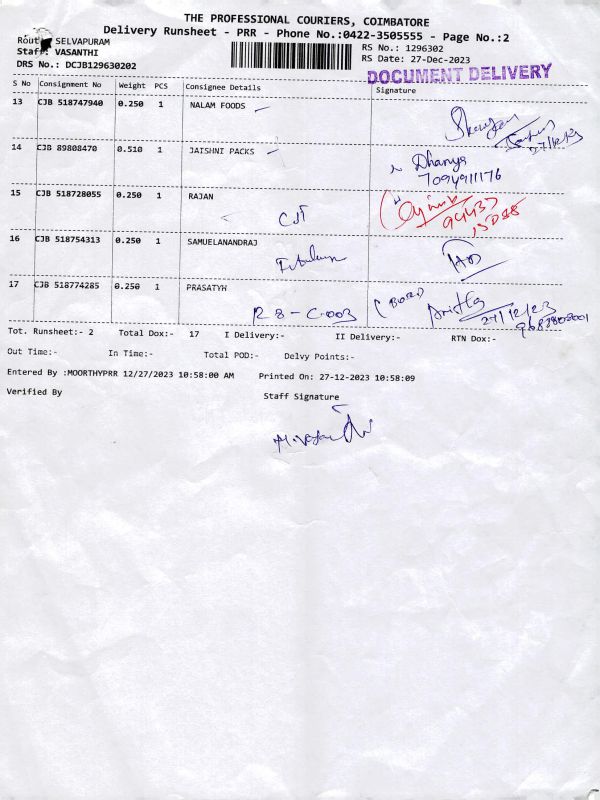 THE PROFESSIONAL COURIERS, COIMBATORE
Delivery Runsheet - PRR - Phone No.:0422-3505555 - Page No.:2
Route: SELVAPURAM
RS No.: 1296302
Staff: VASANTHI
RS Date: 27-Dec-2023
DRS No.: DCJB129630202
DOCUMENT DELIVERY
S No Consignment No Weight PCS Consignee Details Signature
13 CJB 518747940 0.250 1 NALAM FOODS
27/12/23
14 CJB 89808470 0.510 1 JAISHNI PACKS
Dhanya
7094911176
15 CJB 518728055 0.250 1 RAJAN
94437
16 CJB 518754313 0.250 1 SAMUELANANDRAJ
17 CJB 518774285 0.250 1 PRASATYH
R8-C-003
27/12/23
Tot. Runsheet:- 2 Total Dox:- 17 I Delivery:- II Delivery:- RTN Dox:-
Out Time:- In Time:- Total POD:- Delvy Points:-
Entered By :MOORTHYPRR 12/27/2023 10:58:00 AM Printed On: 27-12-2023 10:58:09
Verified By Staff Signature